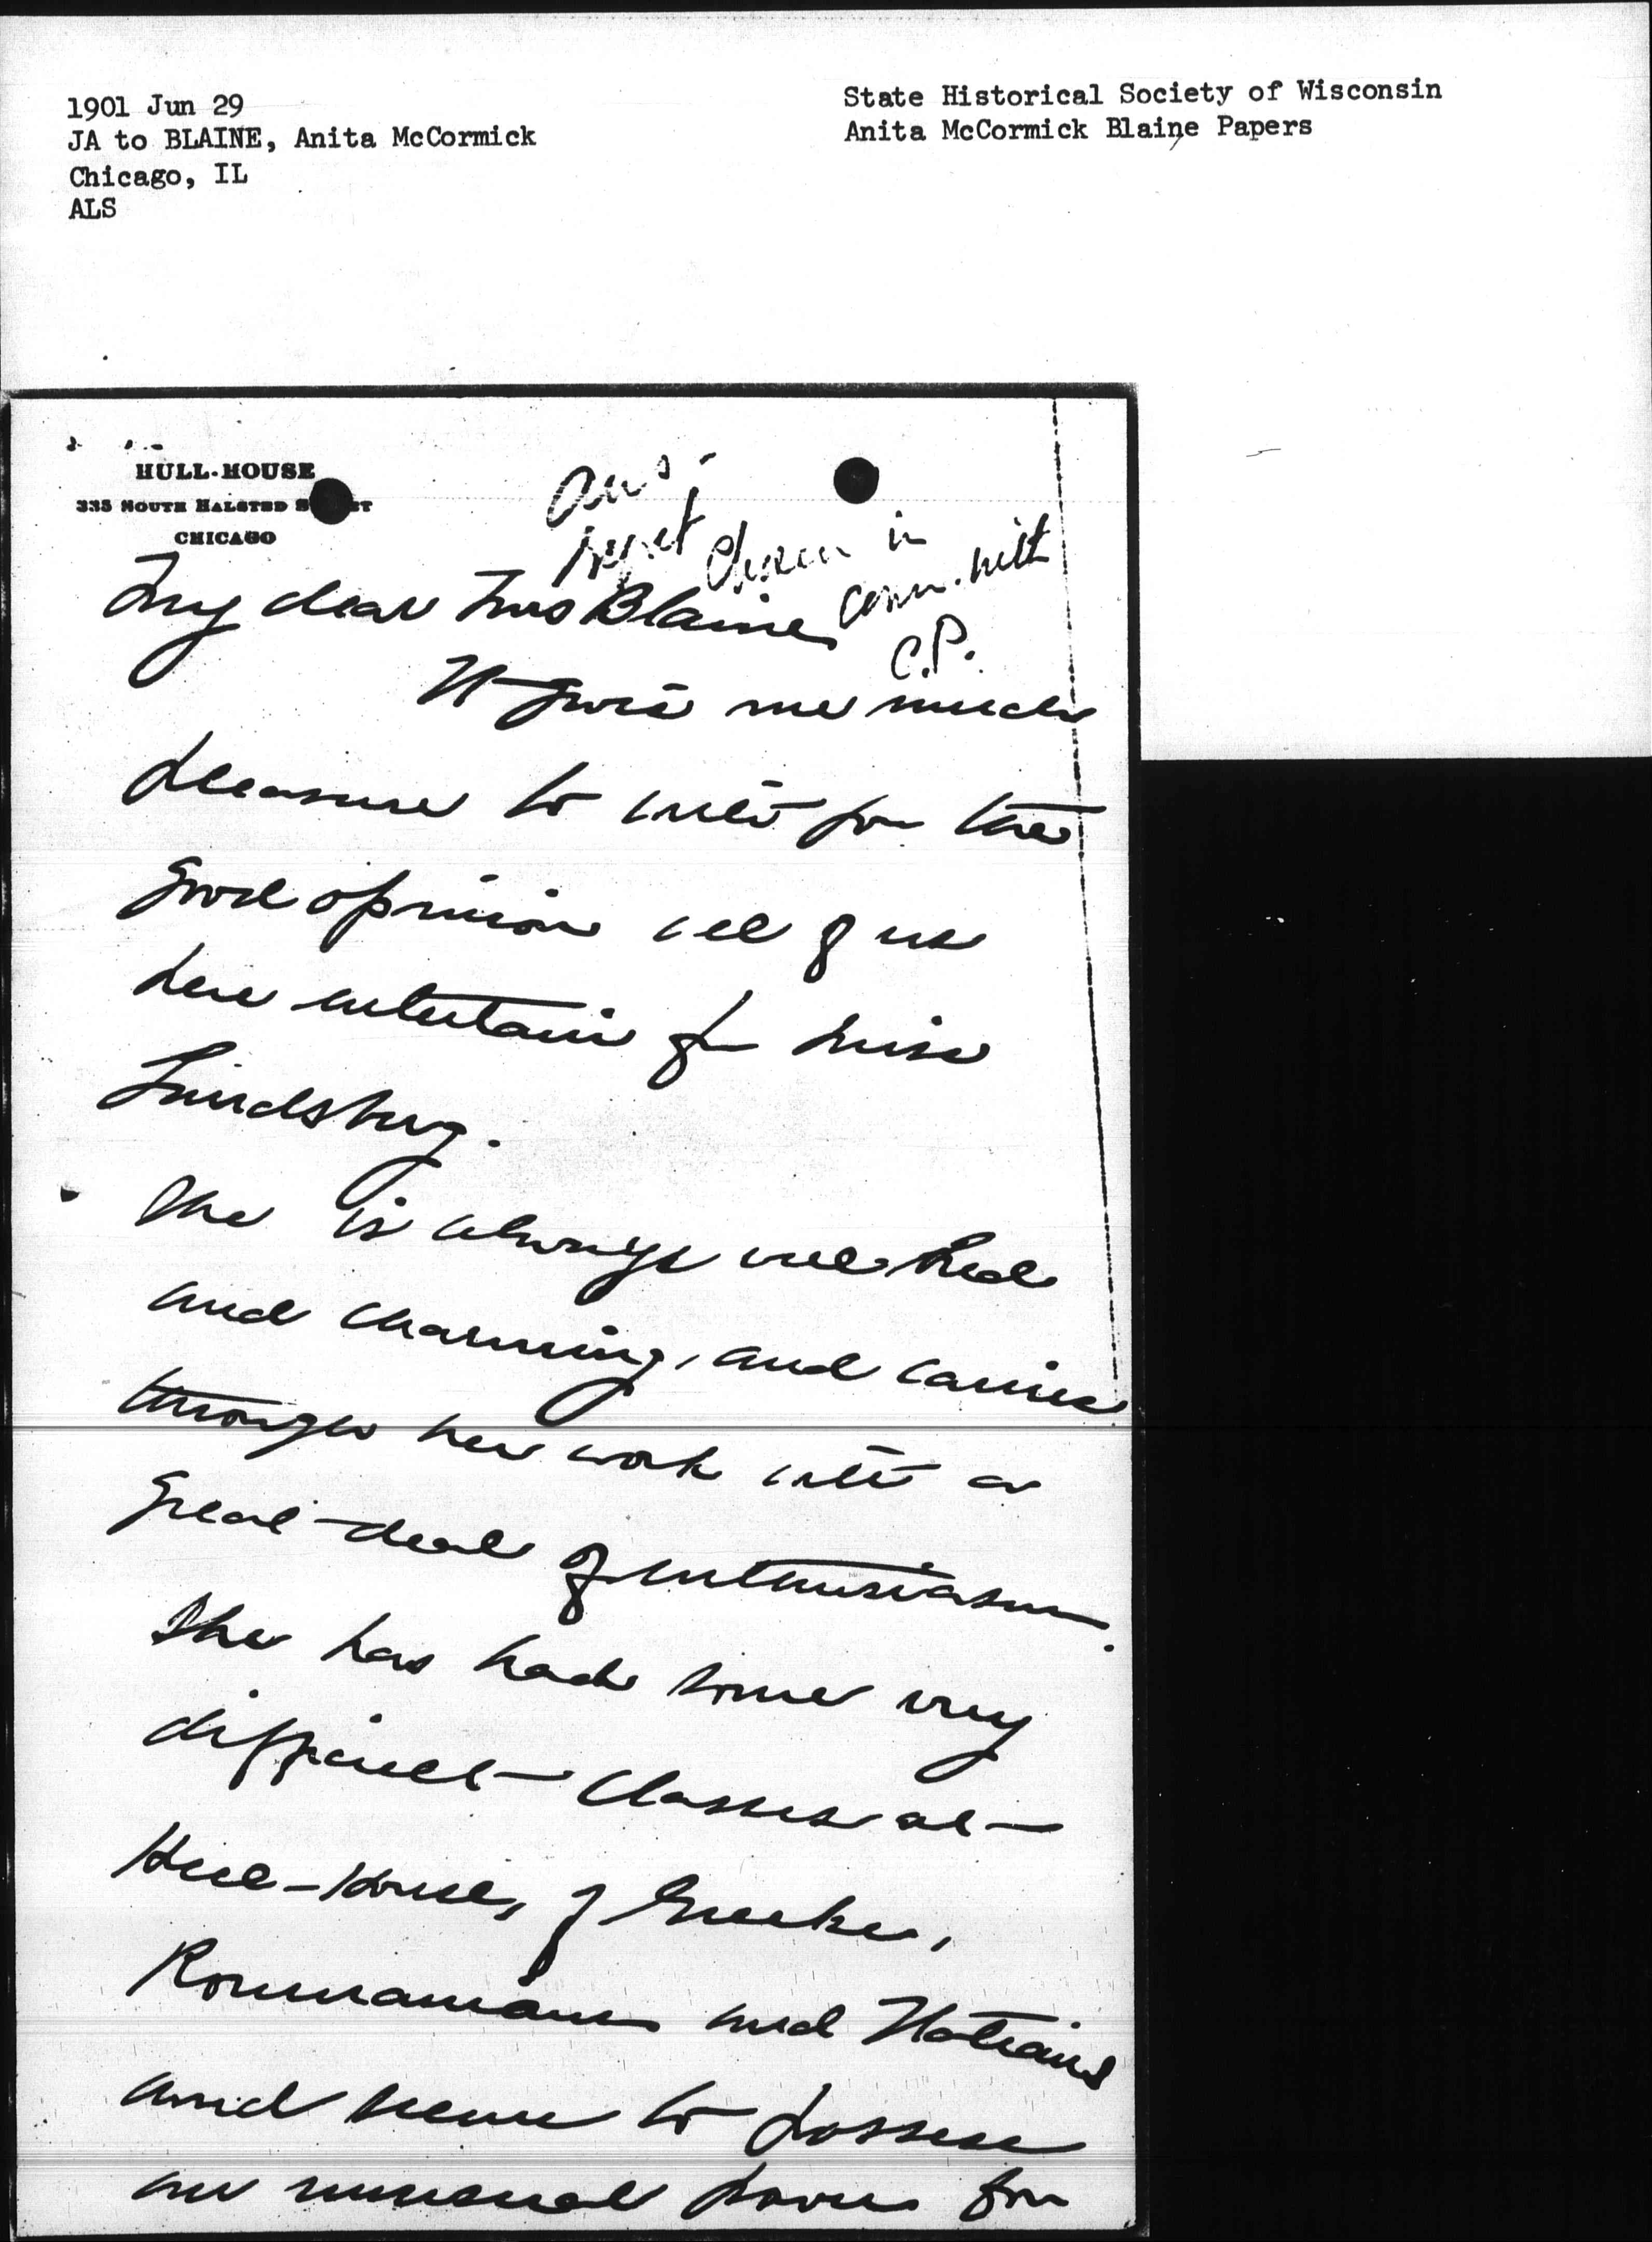 1901 Jun 29
JA to BLAINE, Anita McCormick
Chicago, IL
ALS
State Historical Society of Wisconsin
Anita McCormick Blaine Papers
HULL-HOUSE
335 SOUTH HALSTED S ET
CHICAGO
Ans.
in
conn. with
C.P.
My dear Mrs Blaine
It gives me much
pleasure to write for the
good opinion all of us
here entertain of Miss
Lindsburg.
She is always well bred
and charming, and carries
through her work with a
great deal of enthusiasm.
She has had some very
difficult classes at
Hull-House, of Greeks,
Roumanians and Italians
and seems to possess
an unusual power for